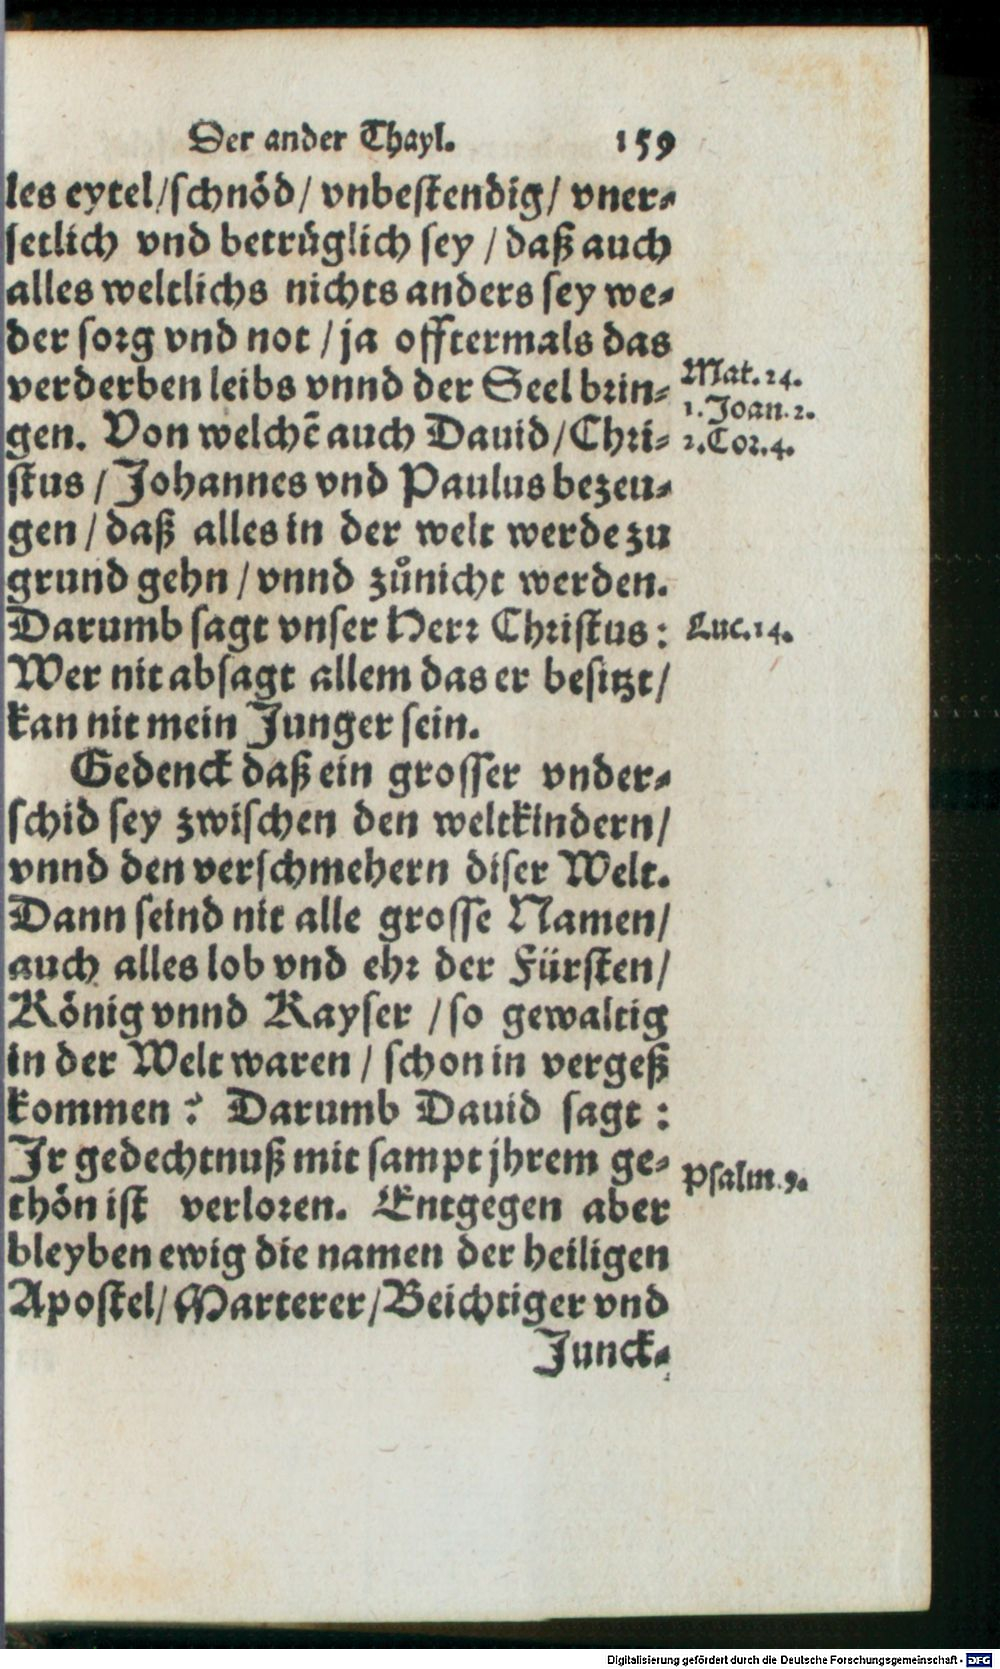 Der ander Thayl. 159
les eytel/schnöd/ vnbestendig/ vner-
setlich vnd betrüglich sey / daß auch
alles weltlichs nichts anders sey we-
der sorg vnd not / ja offtermals das
verderben leibs vnnd der Seel brin-
gen. Von welchē auch Dauid/Chri-
stus / Johannes vnd Paulus bezeu-
gen / daß alles in der welt werde zu
grund gehn / vnnd zůnicht werden.
Darumb sagt vnser Herr Christus:
Wer nit absagt allem das er besitzt/
kan nit mein Junger sein.
Mat. 24.
1. Joan. 2.
2. Cor. 4.
Luc. 14.
Gedenck daß ein grosser vnder-
schid sey zwischen den weltkindern/
vnnd den verschmehern diser Welt.
Dann seind nit alle grosse Namen/
auch alles lob vnd ehr der Fürsten/
König vnnd Kayser / so gewaltig
in der Welt waren / schon in vergeß
kommen? Darumb Dauid sagt:
Jr gedechtnuß mit sampt jhrem ge-
thön ist verloren. Entgegen aber
bleyben ewig die namen der heiligen
Apostel/ Marterer/Beichtiger vnd
Psalm. 9.
Junck-
Digitalisierung gefördert durch die Deutsche Forschungsgemeinschaft - DFG